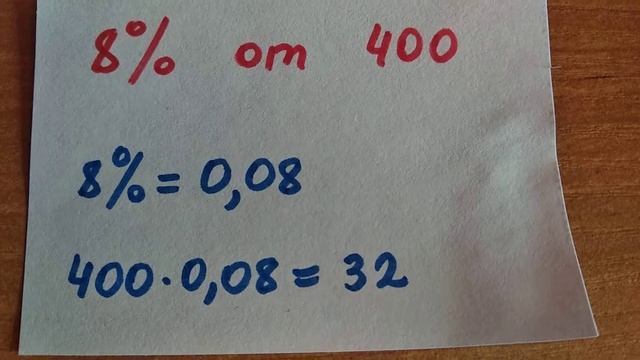 8% от 400
8% = 0,08
400 · 0,08 = 32